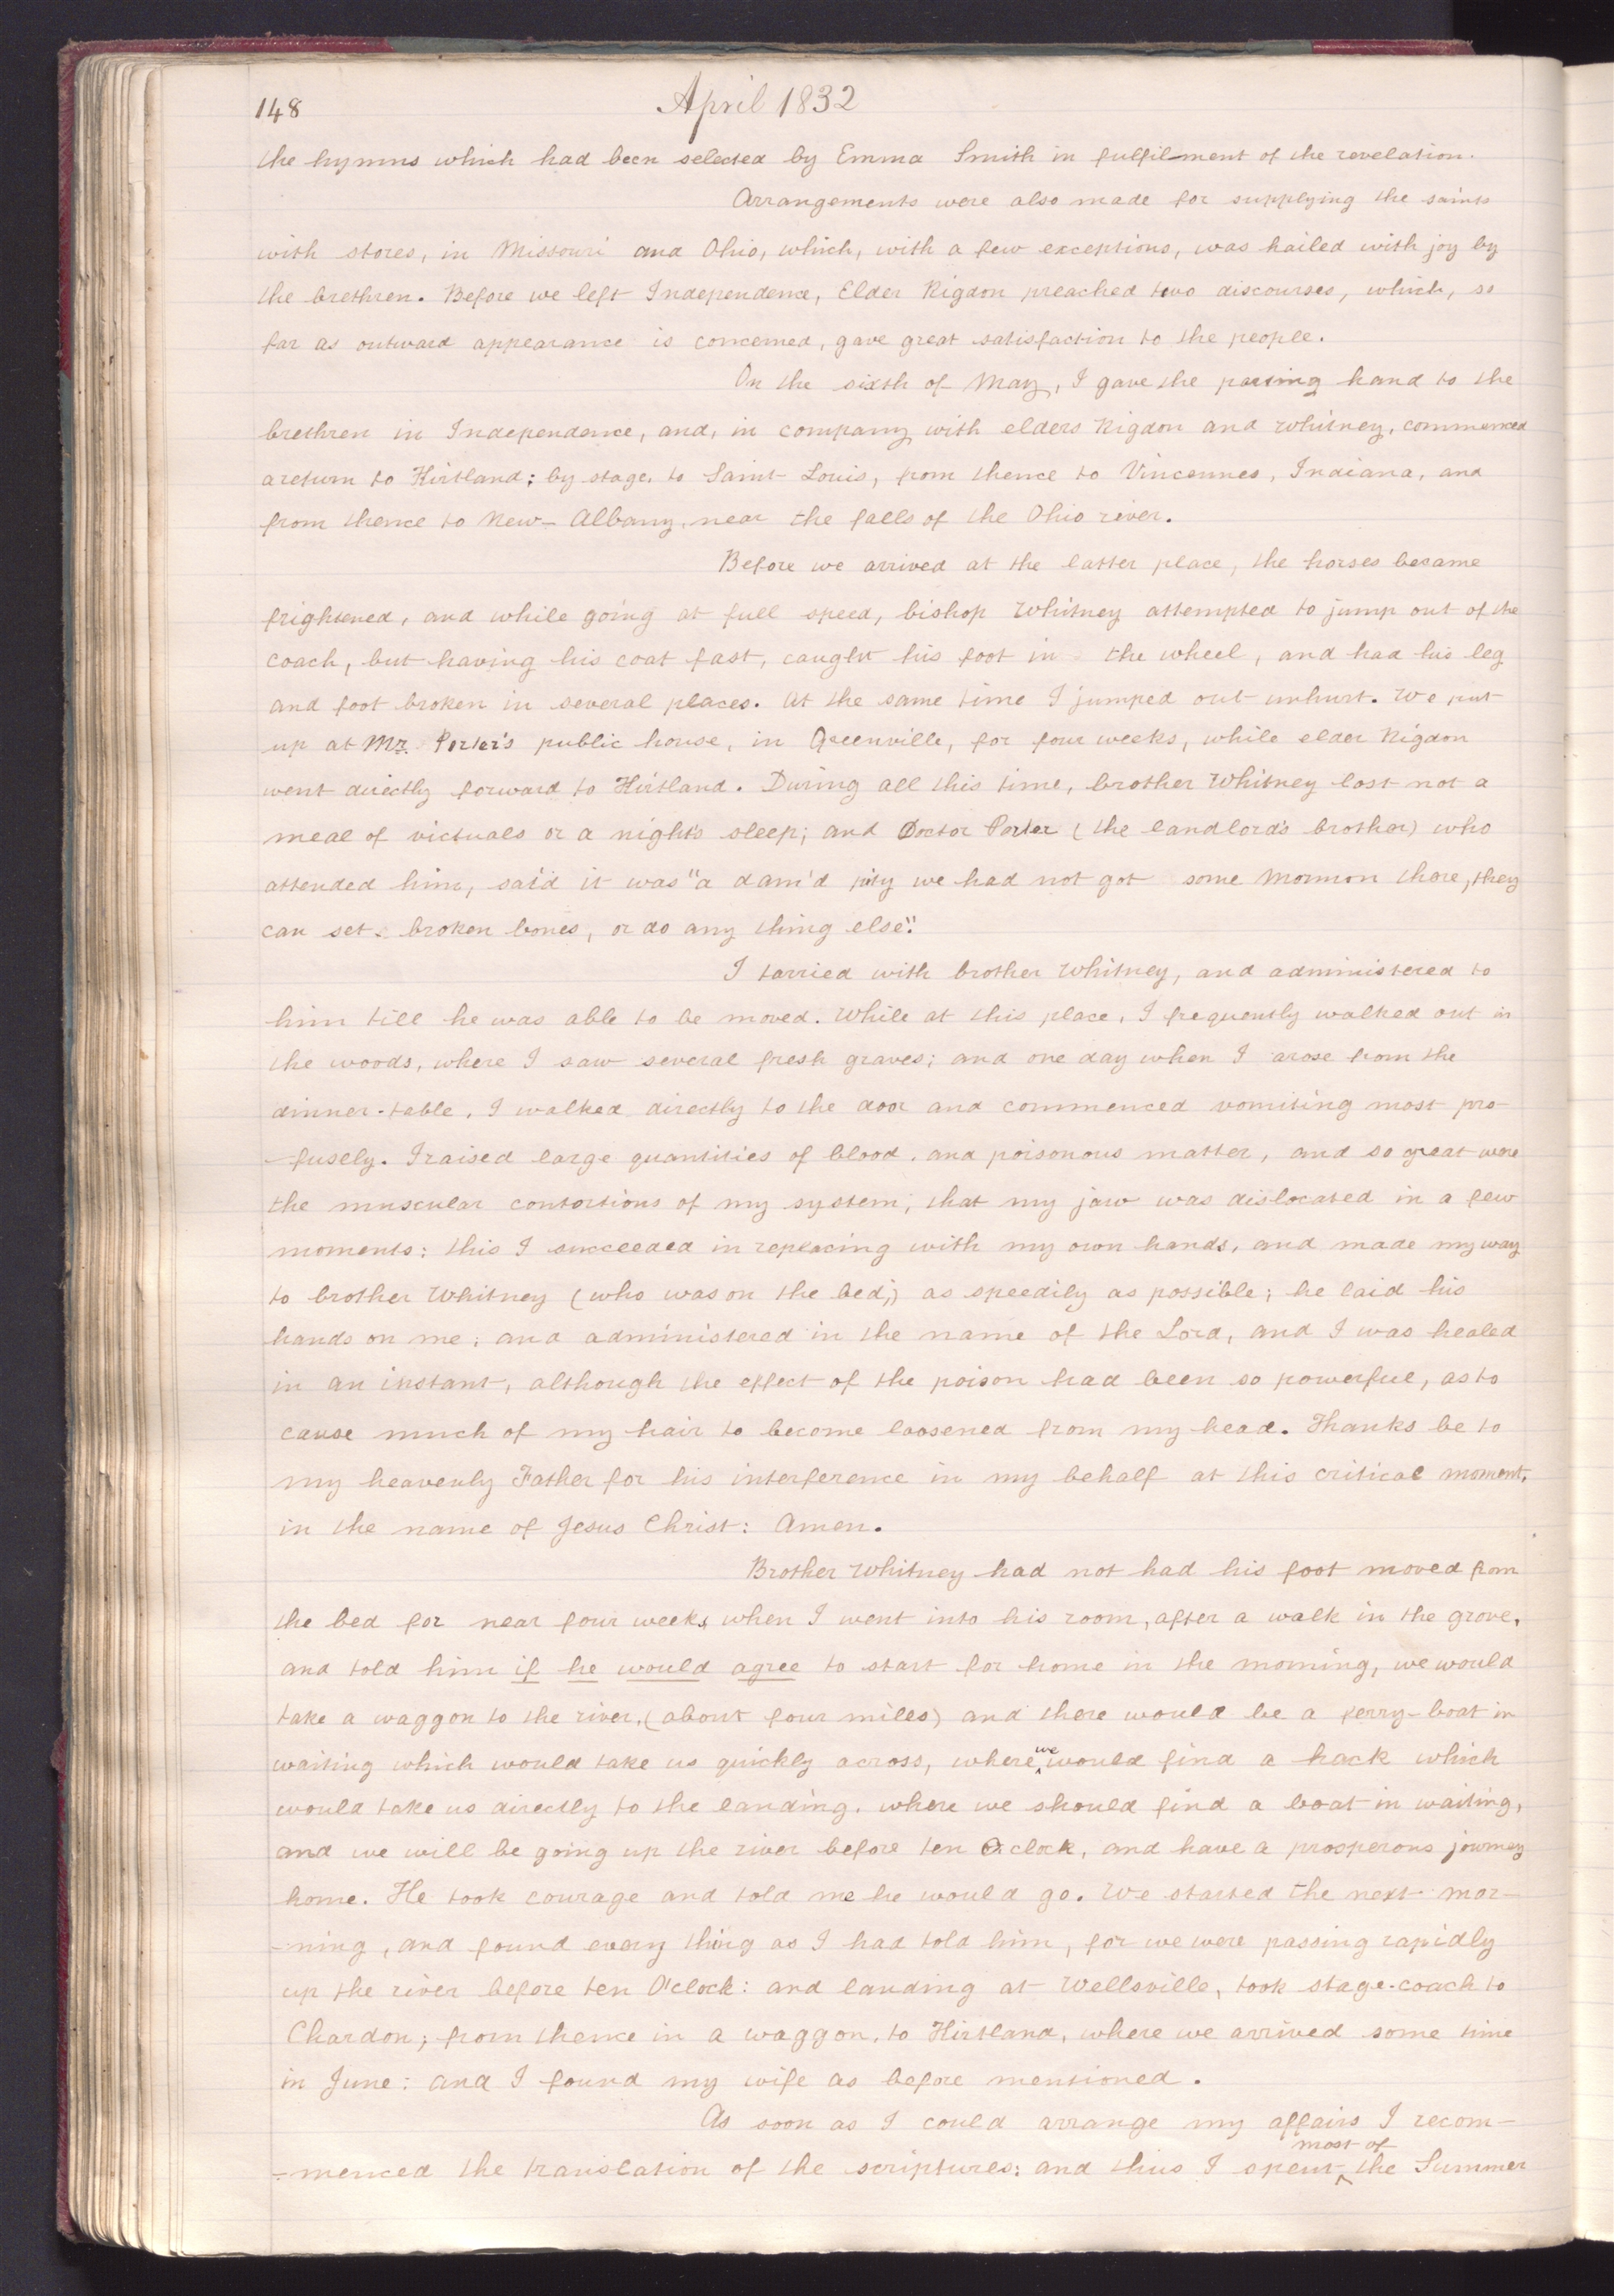 148
April 1832
the hymns which had been selected by Emma Smith in fulfilment of the revelation.
Arrangements were also made for supplying the saints
with stores, in Missouri and Ohio, which, with a few exceptions, was hailed with joy by
the brethren. Before we left Independence, Elder Rigdon preached two discourses, which, so
far as outward appearance is concerned, gave great satisfaction to the people.
On the sixth of May, I gave the parting hand to the
brethren in Independence, and, in company with elders Rigdon and Whitney, commenced
a return to Kirtland; by stage, to Saint Louis, from thence to Vincennes, Indiana, and
from thence to New-Albany, near the falls of the Ohio river.
Before we arrived at the latter place, the horses became
frightened, and while going at full speed, bishop Whitney attempted to jump out of the
coach, but having his coat fast, caught his foot in the wheel, and had his leg
and foot broken in several places. At the same time I jumped out unhurt. We put
up at Mr. Porter's public house, in Greenville, for four weeks, while elder Rigdon
went directly forward to Kirtland. During all this time, brother Whitney lost not a
meal of victuals or a night's sleep; and Doctor Porter (the landlord's brother) who
attended him, said it was "a dam'd pity we had not got some Mormon there, they
can set broken bones, or do any thing else".
I tarried with brother Whitney, and administered to
him till he was able to be moved. While at this place, I frequently walked out in
the woods, where I saw several fresh graves; and one day when I arose from the
dinner-table, I walked directly to the door and commenced vomiting most pro-
-fusely. I raised large quantities of blood, and poisonous matter, and so great were
the muscular contortions of my system, that my jaw was dislocated in a few
moments: this I succeeded in replacing with my own hands, and made my way
to brother Whitney (who was on the bed,) as speedily as possible; he laid his
hands on me, and administered in the name of the Lord, and I was healed
in an instant, although the effect of the poison had been so powerful, as to
cause much of my hair to become loosened from my head. Thanks be to
my heavenly Father for his interference in my behalf at this critical moment,
in the name of Jesus Christ: Amen.
Brother Whitney had not had his foot moved from
the bed for near four weeks, when I went into his room, after a walk in the grove,
and told him if he would agree to start for home in the morning, we would
take a waggon to the river, (about four miles) and there would be a ferry-boat in
waiting which would take us quickly across, where we would find a hack which
would take us directly to the landing, where we should find a boat in waiting,
and we will be going up the river before ten O'clock, and have a prosperous journey
home. He took courage and told me he would go. We started the next mor-
-ning, and found every thing as I had told him, for we were passing rapidly
up the river before ten O'clock: and landing at Wellsville, took stage-coach to
Chardon; from thence in a waggon, to Kirtland, where we arrived some time
in June: and I found my wife as before mentioned.
As soon as I could arrange my affairs I recom-
-menced the translation of the scriptures: and thus I spent most of the Summer